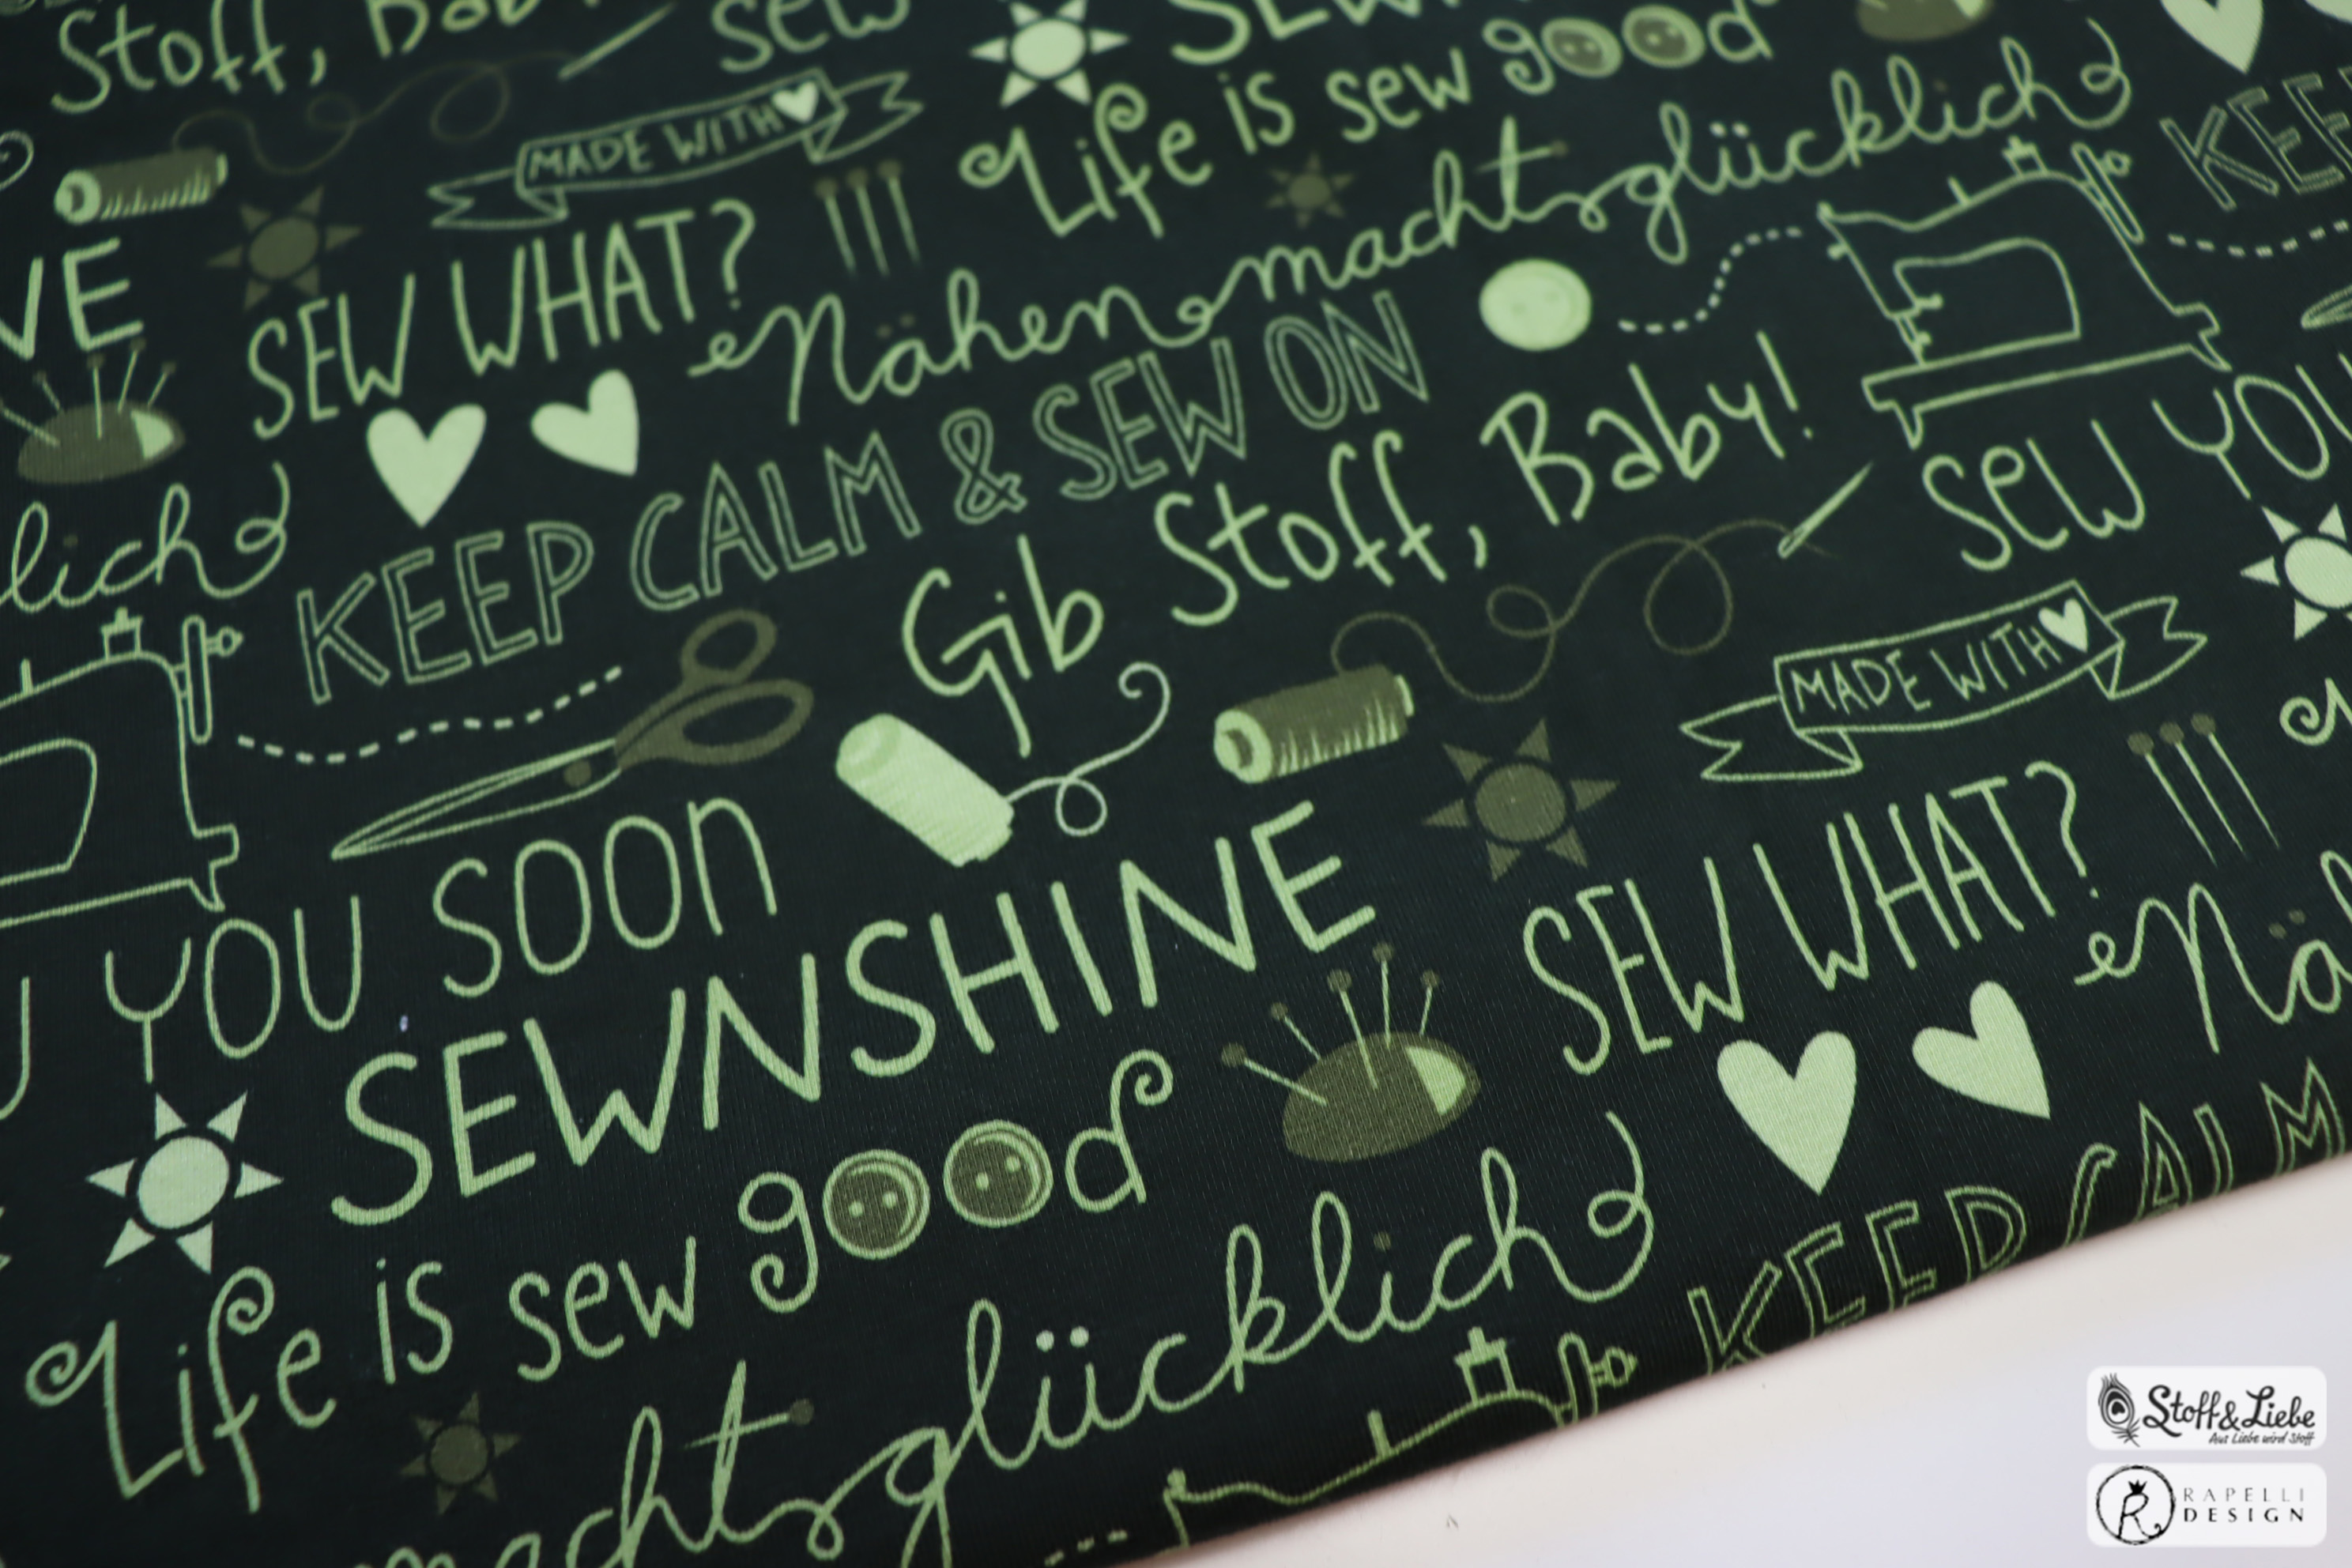 Stoff, Baby
sew
MADE WITH
Life is sew good
SEW WHAT?
Nähen macht glücklich
KEEP CALM & SEW ON
Gib Stoff, Baby!
lich
SEW YOU
MADE WITH
YOU SOON
SEWNSHINE
SEW WHAT?
Nä
Life is sew good
KEEP CALM
macht glücklich
Stoff & Liebe
Aus Liebe wird Stoff
RAPELLI
DESIGN